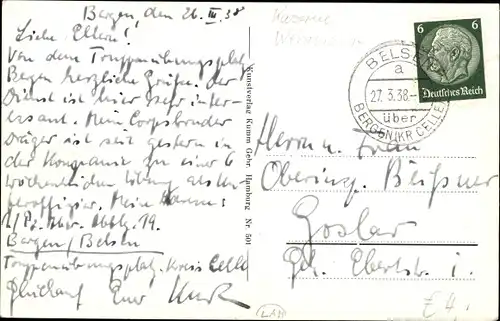 Bergen, den 26. III. 38
Liebe Eltern!
Von dem Truppenübungsplatz
Bergen herzliche Grüße. Der
Dienst ist hier sehr inter-
essant. Mein Corpsbruder
Dräger ist seit gestern in
der Kompanie zu einer 6
wöchentlichen Übung als
Mein
Abw. Abtlg. 19.
Bergen/Belsen
Truppenübungsplatz. Kreis Celle
Glückauf Euer Kurt
Kunstverlag Komm Gebr. Hamburg Nr. 501
Kaserne
6 6
Deutsches Reich
BELSEN
a
27.3.38.-
über
BERGEN (KR CELLE)
Herrn u. Frau
Obering. Beißner
Goslar
Ebertstr. 1.
LAH
£ 4,